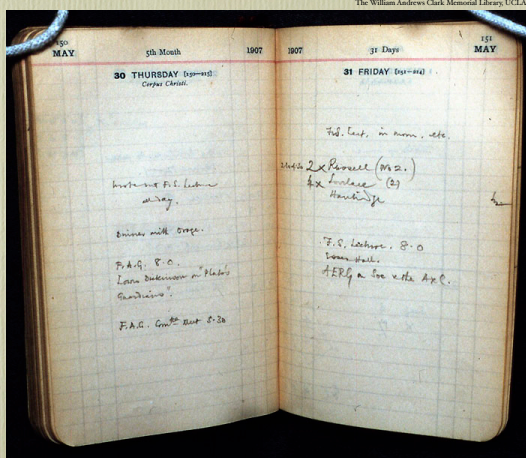 The William Andrews Clark Memorial Library, UCLA
150
MAY
5th Month
1907
30 THURSDAY [150—215]
Corpus Christi.
Wrote out F.S. Lecture
all day.
Dinner with Orage.
F.A.G. 8.0.
Lowes Dickinson on "Plato's
Guardians".
F.A.G. Comtee Meet 5.30
1907
31 Days
151
MAY
31 FRIDAY [151—214]
F.S. Lect. in morn, etc.
2 x Russell (No 2.)
4 x Lovelace (2)
F.S. Lecture. 8.0
Essex Hall.
AERG on Soc & the A & C.